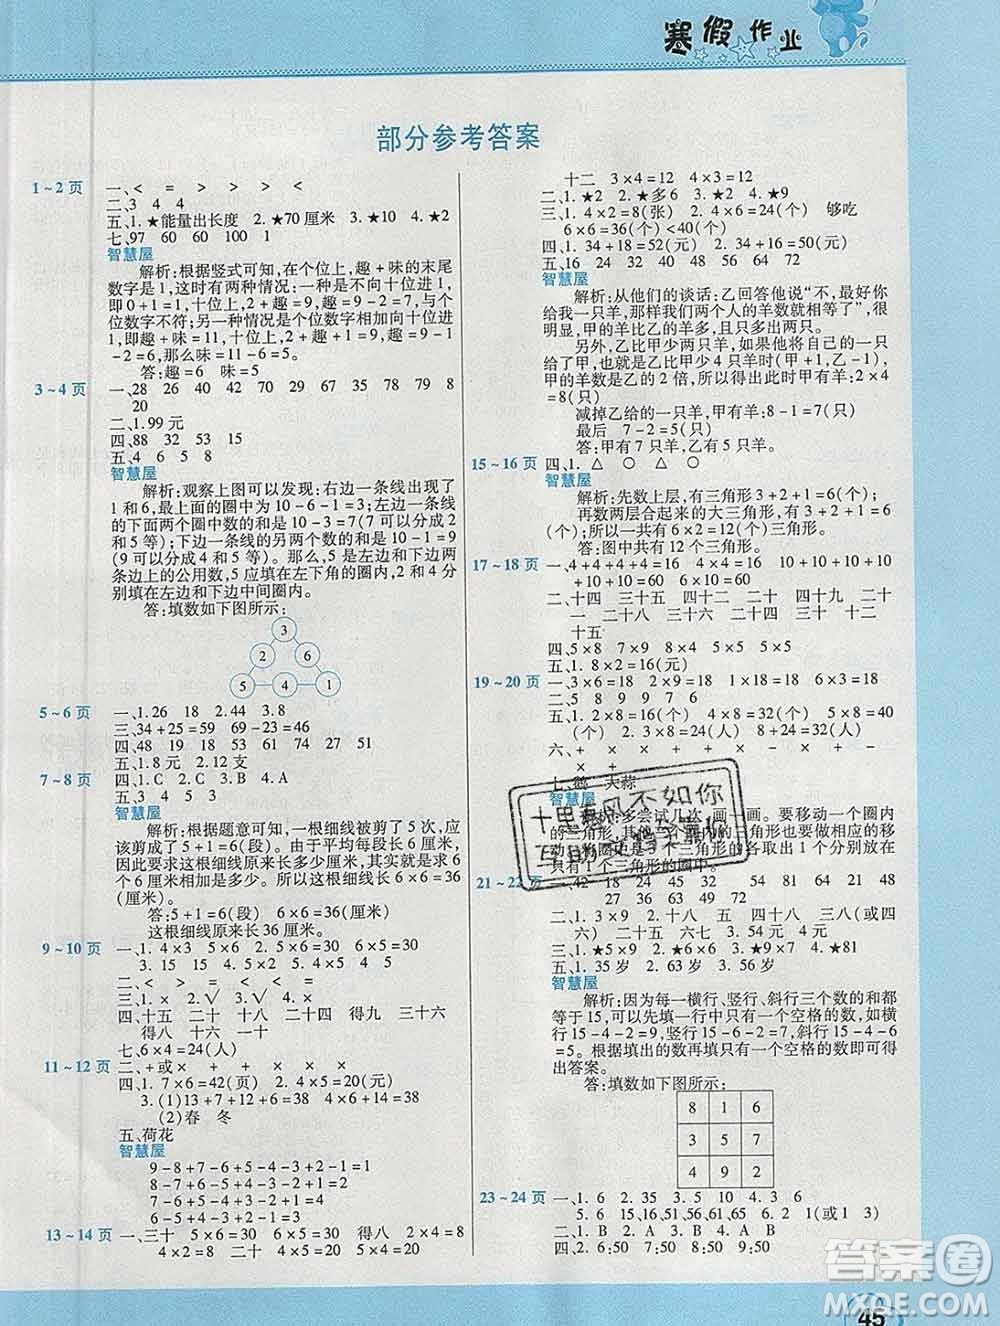 寒假作业
部分参考答案
1~2页 一、< = > > > <
二、3 4 4
五、1.★能量出长度 2.★70厘米 3.★10 4.★2
七、97 60 60 100 1
智慧屋
解析:根据竖式可知,在个位上,趣+味的末尾
数字是1,这时有两种情况:一种是不向十位进1,
即0+1=1,十位上,2+趣=9,趣=9-2=7,与个
位数字不符;另一种情况是个位数字相加向十位
进1,即趣+味=11,十位上,1+2+趣=9,趣=9-1-
2=6,那么味=11-6=5。
答:趣=6 味=5
3~4页 一、28 26 40 42 70 31 35 78 79 8
20
二、1.99元
四、88 32 53 15
五、4 6 5 8
智慧屋
解析:观察上图可以发现:右边一条线出现了
1和6,最上面的圈中是10-6-1=3;左边一条线
的下面两个圈中数的和是10-3=7(7可以分成2
和5等);下边一条线的另两个数的和是10-1=9
(9可以分成4和5等)。那么,5是左边和下边两
条边的公用数,5应填在左下角的圈内,2和4分
别填在左边和下边中间圈内。
答:填数如下图所示:
3
2 6
5 4 1
5~6页 一、1.26 18 2.44 3.8
三、34+25=59 69-23=46
四、48 19 18 53 61 74 27 51
五、1.8元 2.12支
7~8页 四、1.C 2.A 3.A 4.B 5.C
五、3 4 5 2
智慧屋
解析:根据题意可知,一根细线被剪了5次,应
该剪成了5+1=6(段)。由于平均每段长6厘米,
因此要求这根细线原来长多少厘米,就是求6个
6厘米相加是多少。所以这根细线长6×6=36
(厘米)。
答:5+1=6(段) 6×6=36(厘米)
这根细线原来长36厘米。
9~10页 一、1.4×3 5×5 2.6×6 6+6
3.15 15 4.5×4 4×5
二、< > < = < =
三、1.× 2.√ 3.√ 4.×
四、十五 二十 十八 二十四 十二 三十
得八 十六 一十
七、6×4=24(人)
11~12页 二、+或× + + × × ×
四、1.7×6=42(页) 2.4×5=20(元)
3.(1)13+7+12+6=38 14+7+4+13=38
(2)春 冬
五、荷花
智慧屋
9-8+7-6+5-4+3-2-1=3
9-8+7-6+5-4-3+2+1=3
9-8+7-6-5+4+3-2+1=3
7~14页 一、三十 5×6=30 得八 2×4=8
4×2=8 二十 5×4=20 4×5=20
十二 3×4=12 4×3=12
二、1.★5 2.★多6 3.★7 4.★9
三、1.4×2=8(张) 2.4×6=24(个) 够吃
6×6=36(个)<40(个)
四、1.34+18=52(元) 2.34+16=50(元)
五、16 24 32 40 48 56 64
智慧屋
解析:从他们的谈话:乙回答他说“不,最好你
给我一只羊,那样我们两个人的羊数就相等了”,很
明显,甲的羊比乙的羊多,且多出两只。
另外,乙比甲少两只,如果他将自己的一只
给了甲,也就是乙比甲少4只羊时(甲+1,乙-1),
甲的羊数是乙的2倍,所以这时甲的羊数:2×4
=8(只)
减掉乙给的一只羊,甲有羊:8-1=7(只)
最后 7-2=5(只) 答:甲有7只羊,乙有5只羊。
15~16页 四、1.△ ○ △ △
智慧屋
解析:先数上层,有三角形3+2+1=6(个);
再数两层合起来的大三角形,有3+2+1=6
(个),所以一共有6×2=12(个)三角形。
答:图中共有12个三角形。
17~18页 一、4+4+4+4=16 4×4=16 10+10+10+
10+10+10=60 10×6=60
二、十四 三十五 四十二 二十 四十九 二十
一 二十八 三十六 二十四 三十 十二
十五
四、5×8 7×9 8×4 5×5 5×5
五、1.8×2=16(元)
19~20页 一、3×6=18 2×4=8 2×9=18
二、5 8 9 9 7 6
五、1.7×6=42(个) 4×8=32(个) 5×8=40
(个) 2.3×8=24(人) 8+24=32(人)
六、+ × × + - + -
× +
七、鹅 大蒜
智慧屋
解析:多尝试几次,画一画。要移动一个圈内
的三角形,其他三个圈内的三角形也要做相应的移
动,每个圈边是3个三角形的各取出1个分别放在
只有1个三角形的圈中。
十里春风不如你
21~22页 一、42 18 24 45 32 54 64 21 48
27 36 63 49 72
二、1.3×9 2.十八 五 四十八 三八(或四
六) 二十五 六七 3.54 4.> > =
三、1.★5 9 2.★9 3.★7 4.★81
五、1.35岁 2.35岁
智慧屋
解析:因为每一横行、竖行、斜行三个数的和都
等于15,可以先填一行只有一个空格的数,如横
行15-4-2=9,竖行15-6-2=7,斜行15-4-6
=5。根据填出的数再填只有一个空格的数即可得
出答案。
答:填数如下图所示:
8 1 6
3 5 7
4 9 2
23~24页 一、1.6 2.15 3.> < > < 4.30
5.6,15,16,51,56,61,65 6.12(或13)
二、1.B 2.A 3.B 4.A
四、2:50 4:50 7:50 9:50
45
答案圈
MXQE.COM